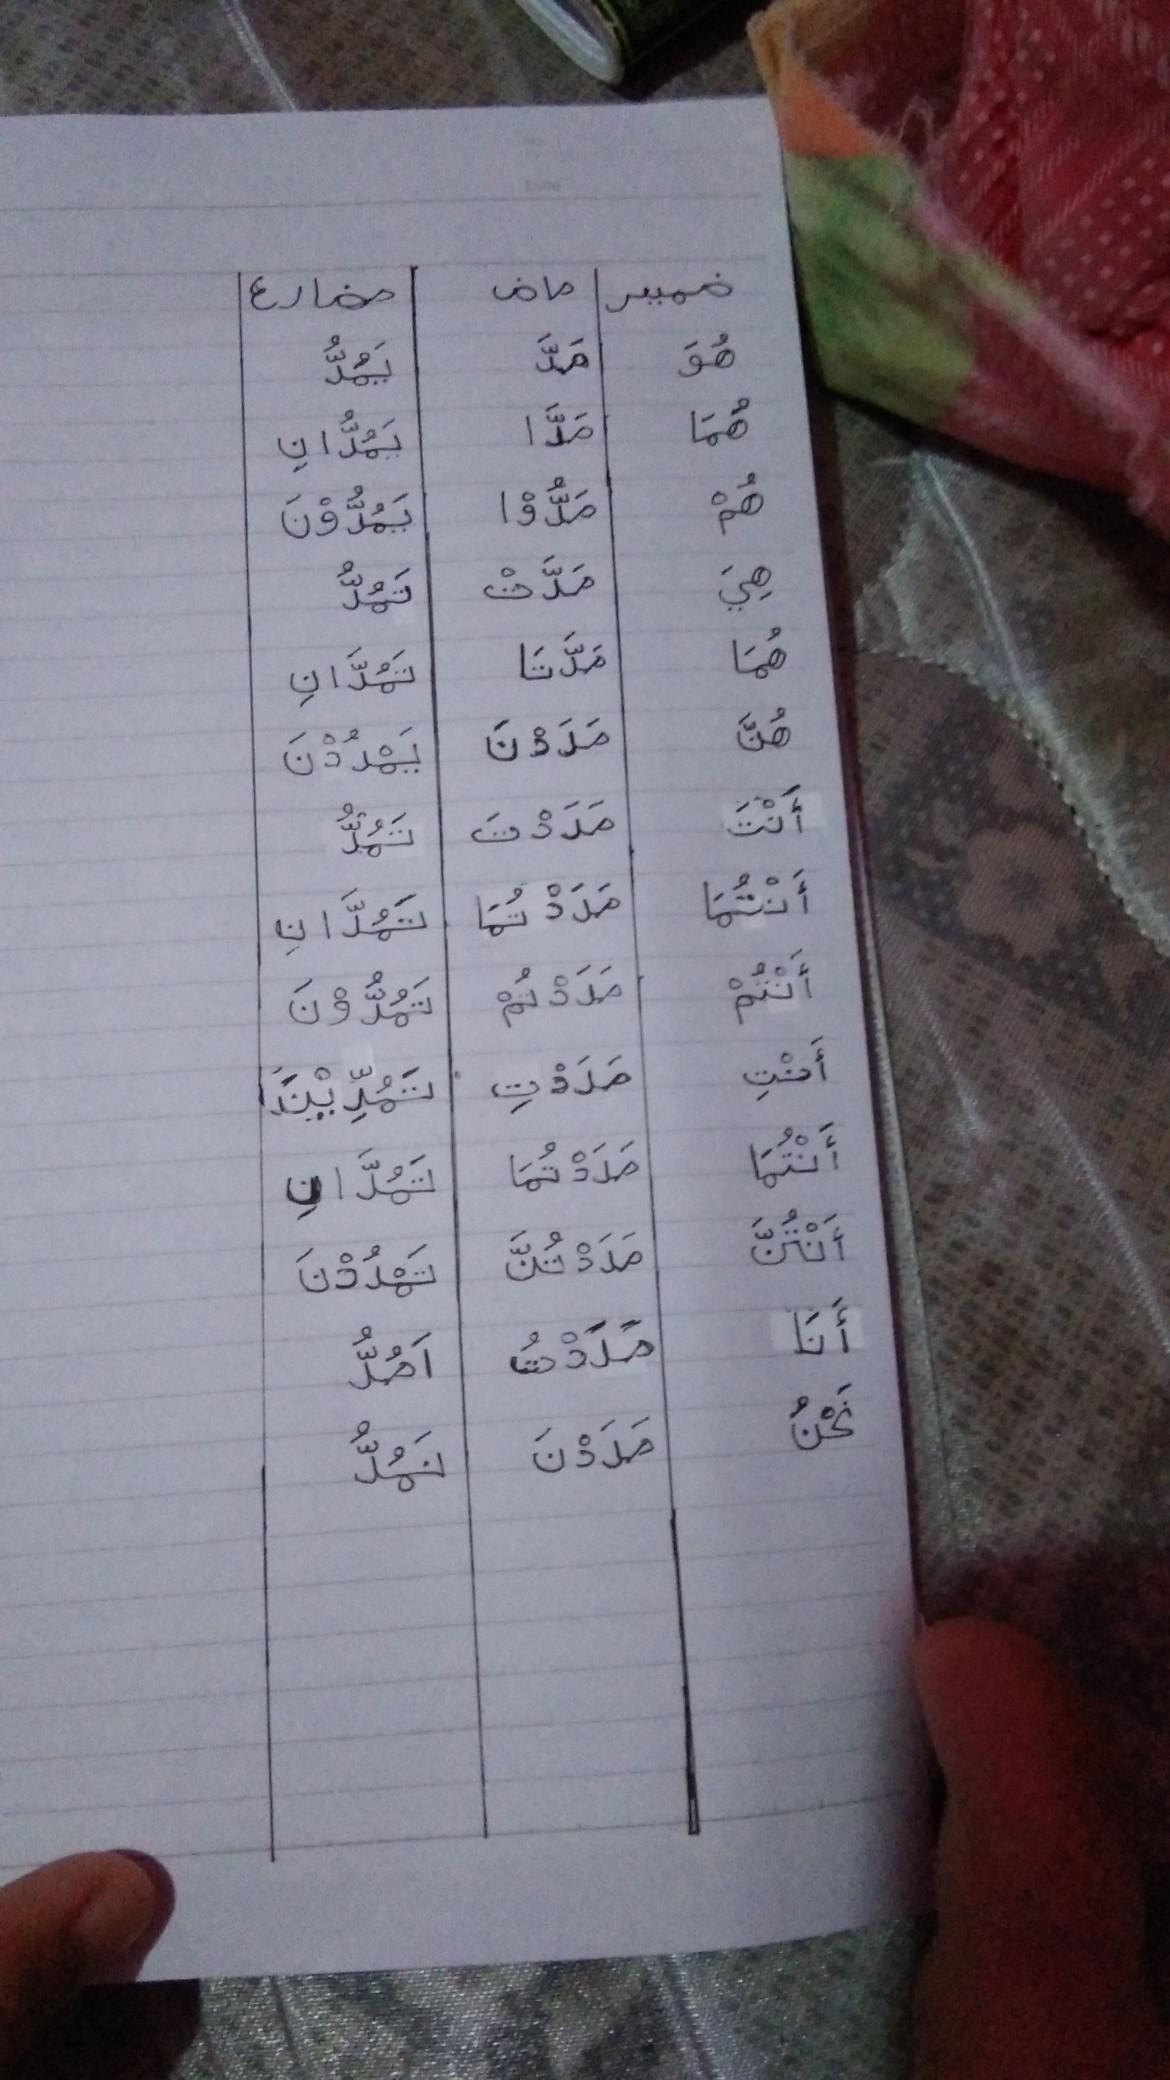 ضمير ماض مضارع
هُوَ مَدَّ يَمُدُّ
هُمَا مَدَّا يَمُدَّانِ
هُمْ مَدُّوْا يَمُدُّوْنَ
هِيَ مَدَّتْ تَمُدُّ
هُمَا مَدَّتَا تَمُدَّانِ
هُنَّ مَدَدْنَ يَمْدُدْنَ
أَنْتَ مَدَدْتَ تَمُدُّ
أَنْتُمَا مَدَدْتُمَا تَمُدَّانِ
أَنْتُمْ مَدَدْتُمْ تَمُدُّوْنَ
أَنْتِ مَدَدْتِ تَمُدِّيْنَ
أَنْتُمَا مَدَدْتُمَا تَمُدَّانِ
أَنْتُنَّ مَدَدْتُنَّ تَمْدُدْنَ
أَنَا مَدَدْتُ اَمُدُّ
نَحْنُ مَدَدْنَ نَمُدُّ